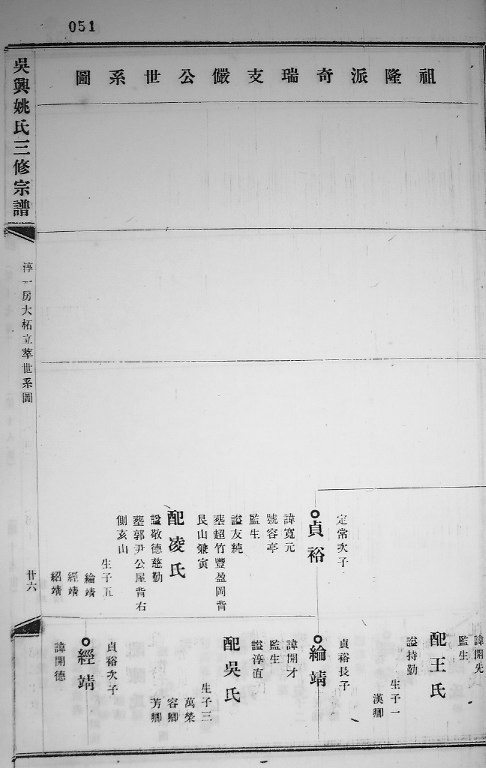 051
祖隆派奇瑞支儼公世系圖
吳興姚氏三修宗譜
淳一房大柘立莘世系圖
廿六
定常次子
貞裕
諱寬元
號容亭
監生
諡友純
葬超竹豐盈岡背
艮山兼寅
配凌氏
諡敬德慈勤
葬郭尹公屋背右
側亥山
生子五
綸靖
經靖
紹靖
諱開先
監生
配王氏
諡持勤
生子一
漢卿
貞裕長子
綸靖
諱開才
監生
諡淳直
配吳氏
生子三
萬棨
容卿
芳卿
貞裕次子
經靖
諱開德